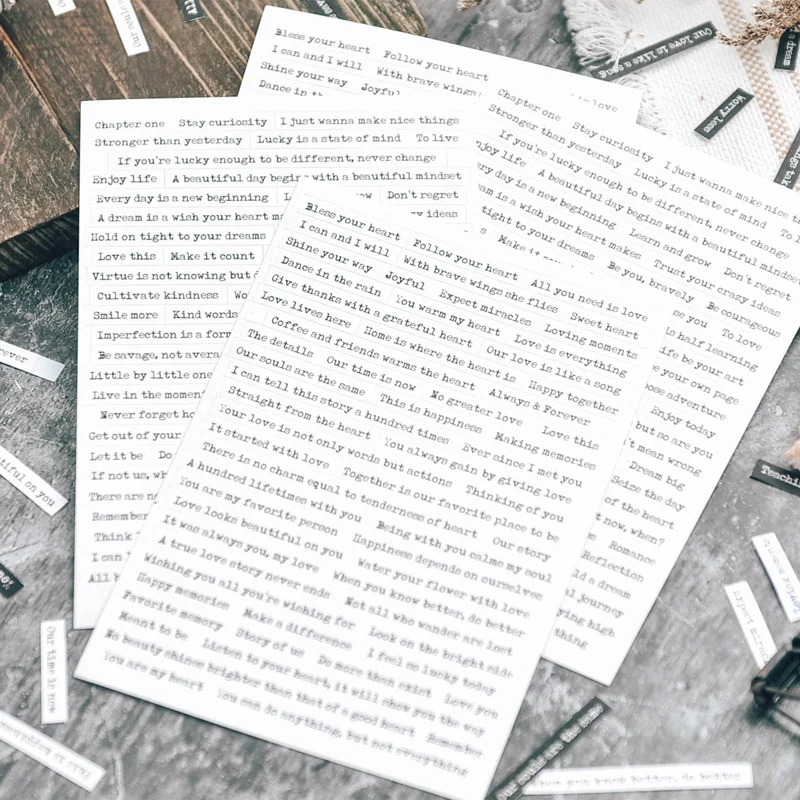 Bless your heart Follow your heart
I can and I will With brave wings
Shine your way Joyful
Dance in
love
Our love is like a song
Worry less
Chapter one Stay curiosity I just wanna make nice things
Stronger than yesterday Lucky is a state of mind To live
If you're lucky enough to be different, never change
Enjoy life A beautiful day begins with a beautiful mindset
Every day is a new beginning Don't regret
A dream is a wish your heart ideas
Hold on tight to your dreams
Love this Make it count
Virtue is not knowing but
Cultivate kindness
Smile more Kind words
Imperfection is a
Be savage, not
Little by little one
Live in the
Never forget
Get out of your
Let it be
If not us,
There are
Remember
Think
I can
All
Chapter one Stay curiosity I just wanna make nice
Stronger than yesterday Lucky is a state of mind To
If you're lucky enough to be different, never change
life A beautiful day begins with a beautiful mindset
day is a new beginning Learn and grow Don't regret
is a wish your heart makes Trust your crazy ideas
tight to your dreams Be you, bravely Be courageous
Make it you To love
is half learning
life be your art
your own page
adventure
Enjoy today
but so are you
mean wrong
Dream big
Seize the day
of the heart
now, when?
Romance
Reflection
a dream
journey
high
thing
Bless your heart Follow your heart All you need is love
I can and I will With brave wings she flies Sweet heart
Shine your way Joyful Expect miracles Loving moments
Dance in the rain You warm my heart Love is everything
Give thanks with a grateful heart Our love is like a song
Love lives here Home is where the heart is Happy together
Coffee and friends warms the heart Always & Forever
The details Our time is now No greater love Love this
Our souls are the same This is happiness Making memories
I can tell this story a hundred times Ever since I met you
Straight from the heart You always gain by giving love
Your love is not only words but actions Thinking of you
It started with love Together is our favorite place to be
There is no charm equal to tenderness of heart Our story
A hundred lifetimes with you Being with you calms my soul
You are my favorite person Happiness depends on ourselves
Love looks beautiful on you Water your flower with love
It was always you, my love When you know better, do better
A true love story never ends Not all who wander are lost
Wishing you all you're wishing for Look on the bright side
Happy memories Make a difference I feel so lucky today
Favorite memory Story of us Do more than exist Love you
Meant to be Listen to your heart, it will show you the way
No beauty shines brighter than that of a good heart Remember
You are my heart You can do anything, but not everything
on you
Our time is now
Our souls are the same
When you know better, do better